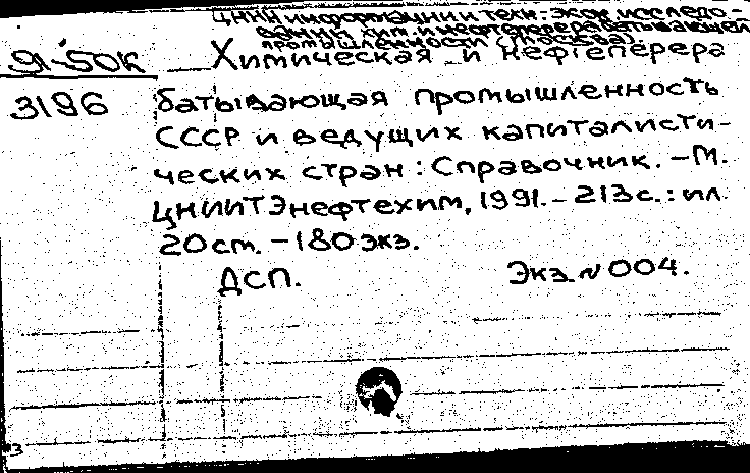 ЦНИИ информации и техн.-экон. исследо-
ваний хим. и нефтеперерабатывающей
промышленности (Москва).
91-50к Химическая и нефтеперера
3196 батывающая промышленность
СССР и ведущих капиталисти-
ческих стран: Справочник. - М.
ЦНИИТЭнефтехим, 1991. - 213 с.: ил
20 см. - 180 экз.
ДСП. Экз. № 004.